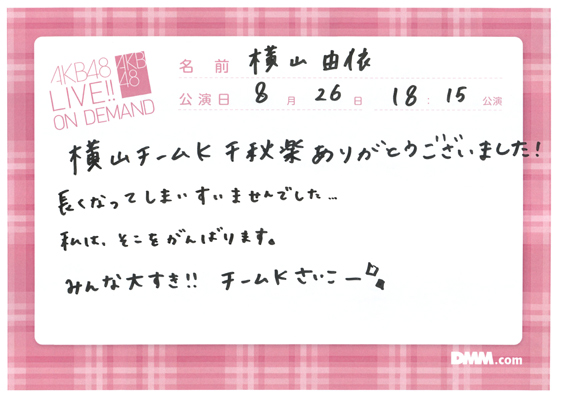 AKB48
LIVE!!
ON DEMAND
AKB
48
名前 横山由依
公演日 8月26日 18:15 公演
横山チームK 千秋楽ありがとうございました!
長くなってしまいすいませんでした…
私は、そこをがんばります。
みんな大すき!! チームKさいこー
DMM.com